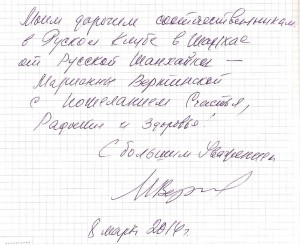 Моим дорогим соотечественникам
в Русском Клубе в Шанхае
от Русской Шанхайки —
Марианны Вертинской
с пожеланием Счастья,
Радости и Здоровья!
С большим Уважением
8 март 2014г.